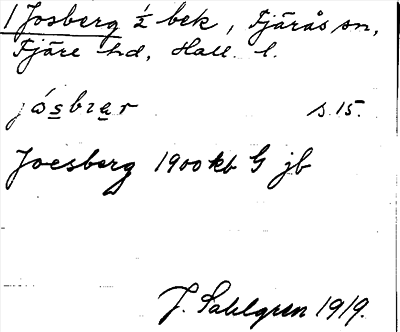 1 Josberg ½ bek, Fjärås sn,
Fjäre hd, Hall. l.
jósbrar s 15.
Joesberg 1900 kb G jb
J. Sahlgren 1919.